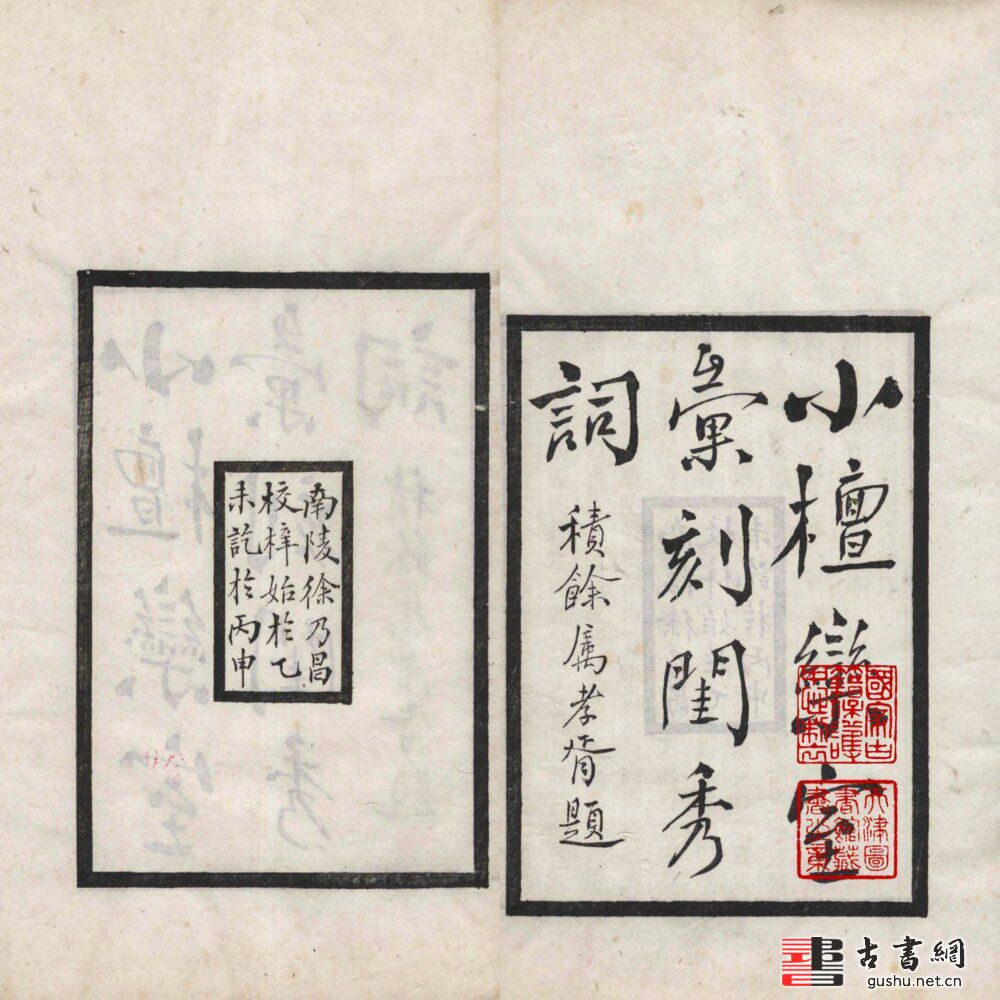 小檀欒室
彙刻閨秀
詞
積餘属孝胥題
南陵徐乃昌
校梓始於乙
未訖於丙申
天津圖
書館藏
書之章
古書網
gushu.net.cn